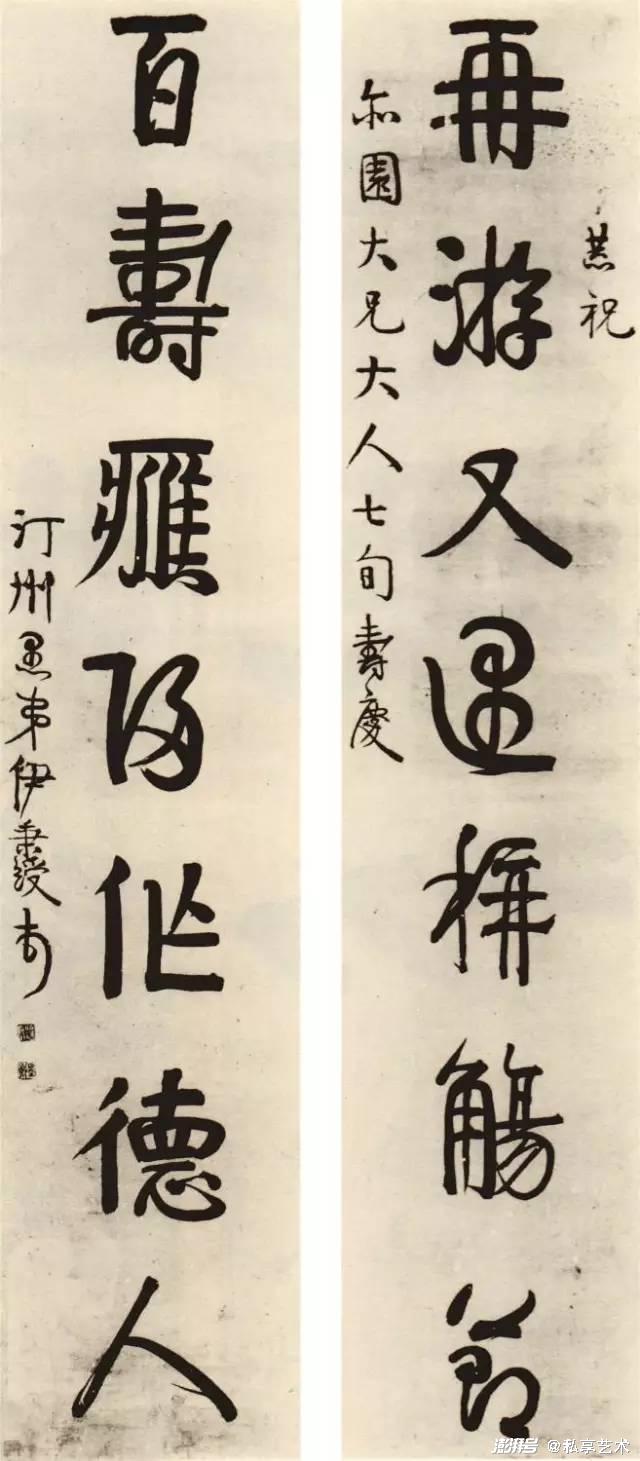 恭祝
再游又遇稱觴節
亦園大兄大人七旬壽慶
百壽應歸作德人
汀州愚弟伊秉綬書
澎湃号 @私享艺术